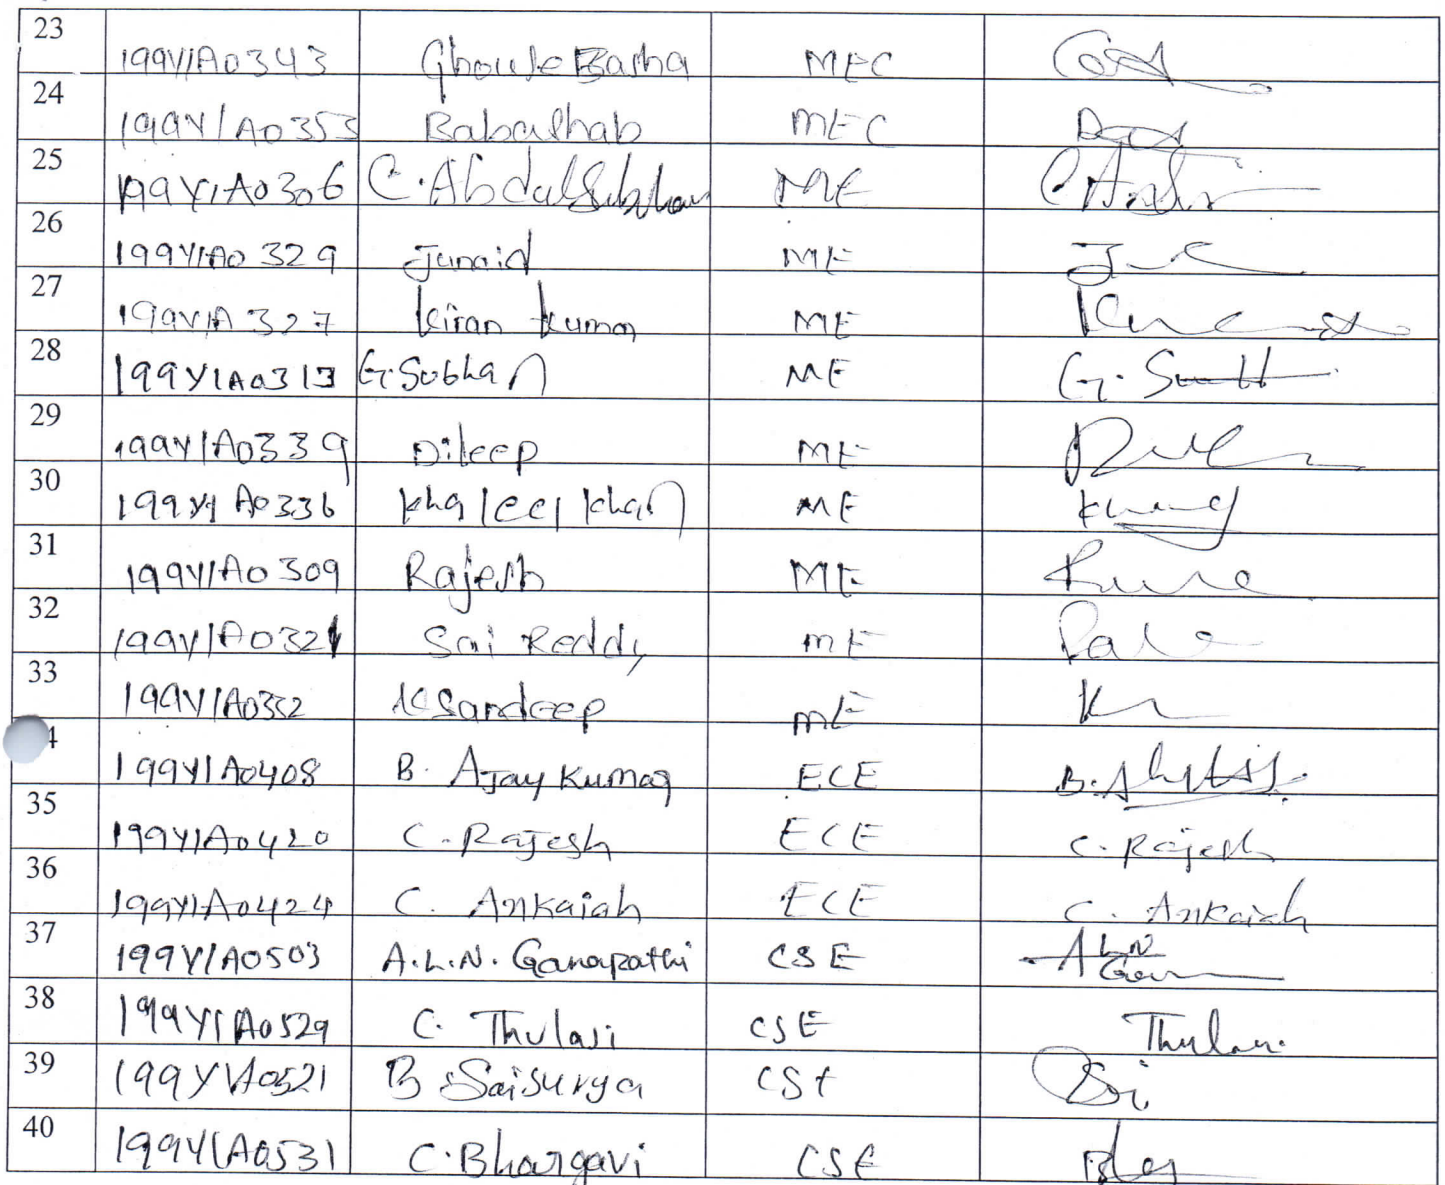 23 199Y1A0343 Ghouse Basha MEC
24 199Y1A0353 Babashab MEC
25 199Y1A0306 C.Abdul Subhan ME
26 199Y1A0329 Junaid ME
27 199Y1A327 Kiran Kumar ME
28 199Y1A0313 G.Subhan ME G.
29 199Y1A0339 Dileep ME
30 199Y1A0336 Khaleel Khan ME
31 199Y1A0309 Rajesh ME
32 199Y1A0321 Sai Reddy ME
33 199Y1A0352 K Sandeep ME
4 199Y1A0408 B. Ajay Kumar ECE B.
35 199Y1A0420 C. Rajesh ECE C. Rajesh
36 199Y1A0424 C. Ankaiah ECE C. Ankaiah
37 199Y1A0503 A.L.N. Ganapathi CSE A L.N
38 199Y1A0529 C. Thulasi CSE Thulasi
39 199Y1A0521 B. Saisurya CSE Sai
40 199Y1A0531 C. Bhargavi CSE